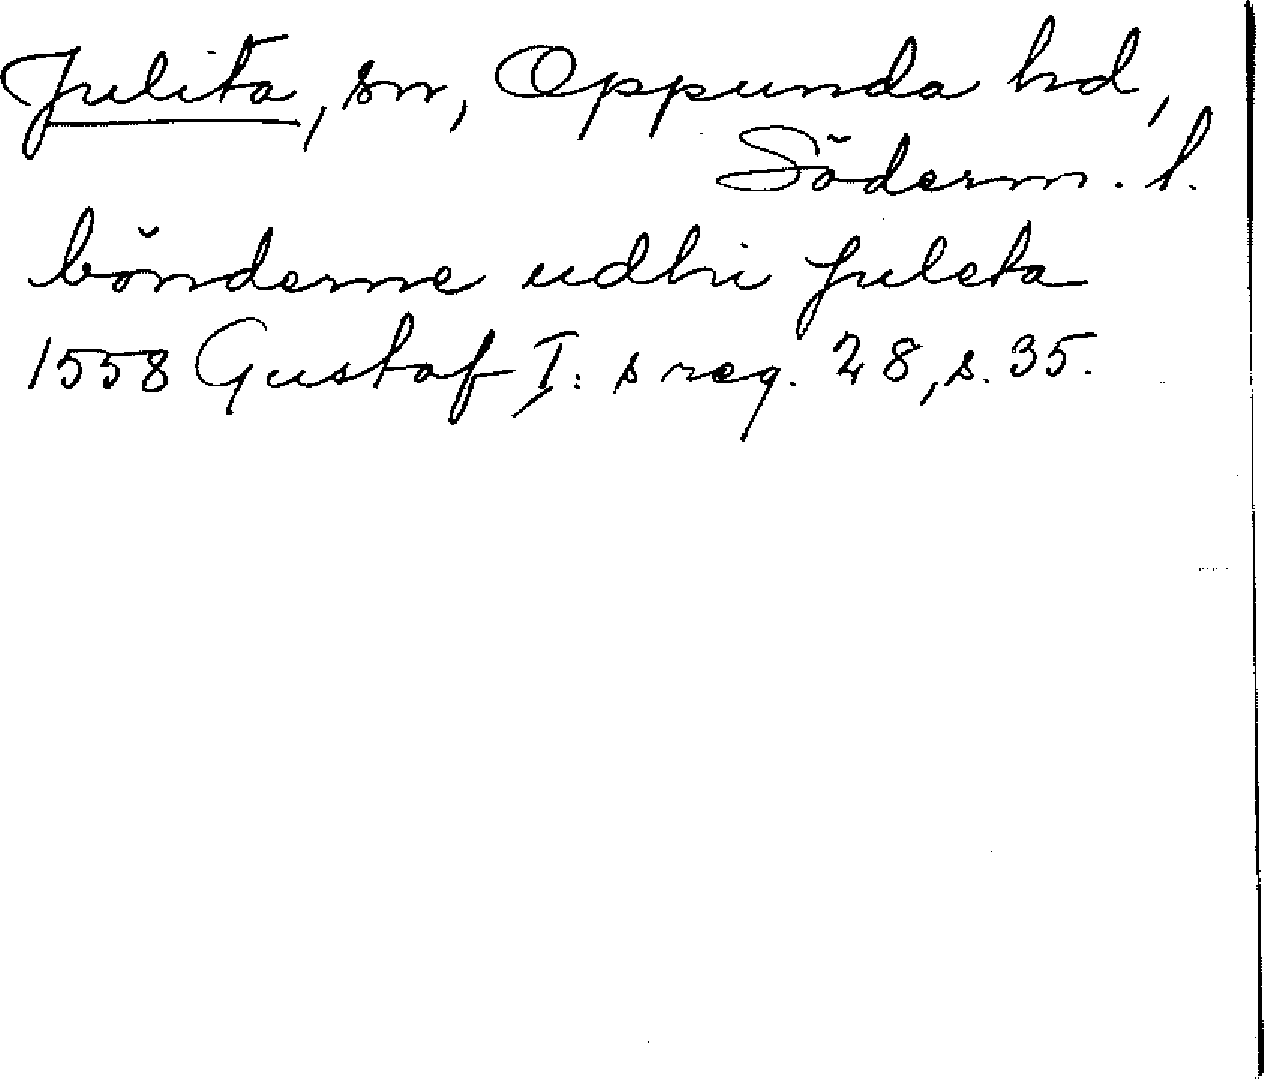 Julita, sn, Oppunda hd,
Söderm. l.
bönderne udhi Juleta
1558 Gustaf I: s reg. 28, s. 35.